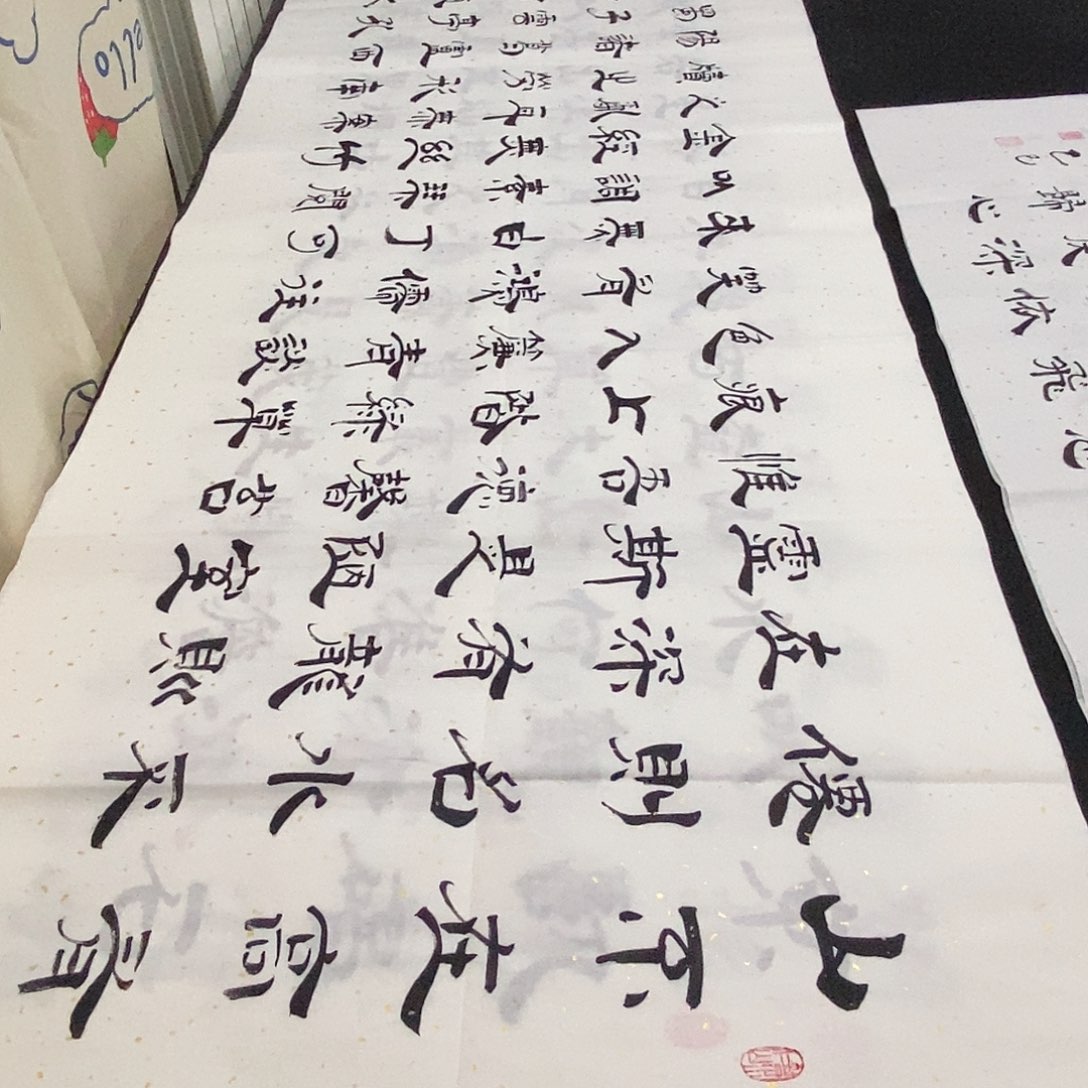 山不在高有
僊則名水不
在深有龍則
靈斯是陋室
惟吾德馨苔
痕上階綠草
色入簾青談
笑有鴻儒往
來無白丁可
以調素琴閱
金經無絲竹
之亂耳無案
牘之勞形南
陽諸葛廬西
蜀子雲亭